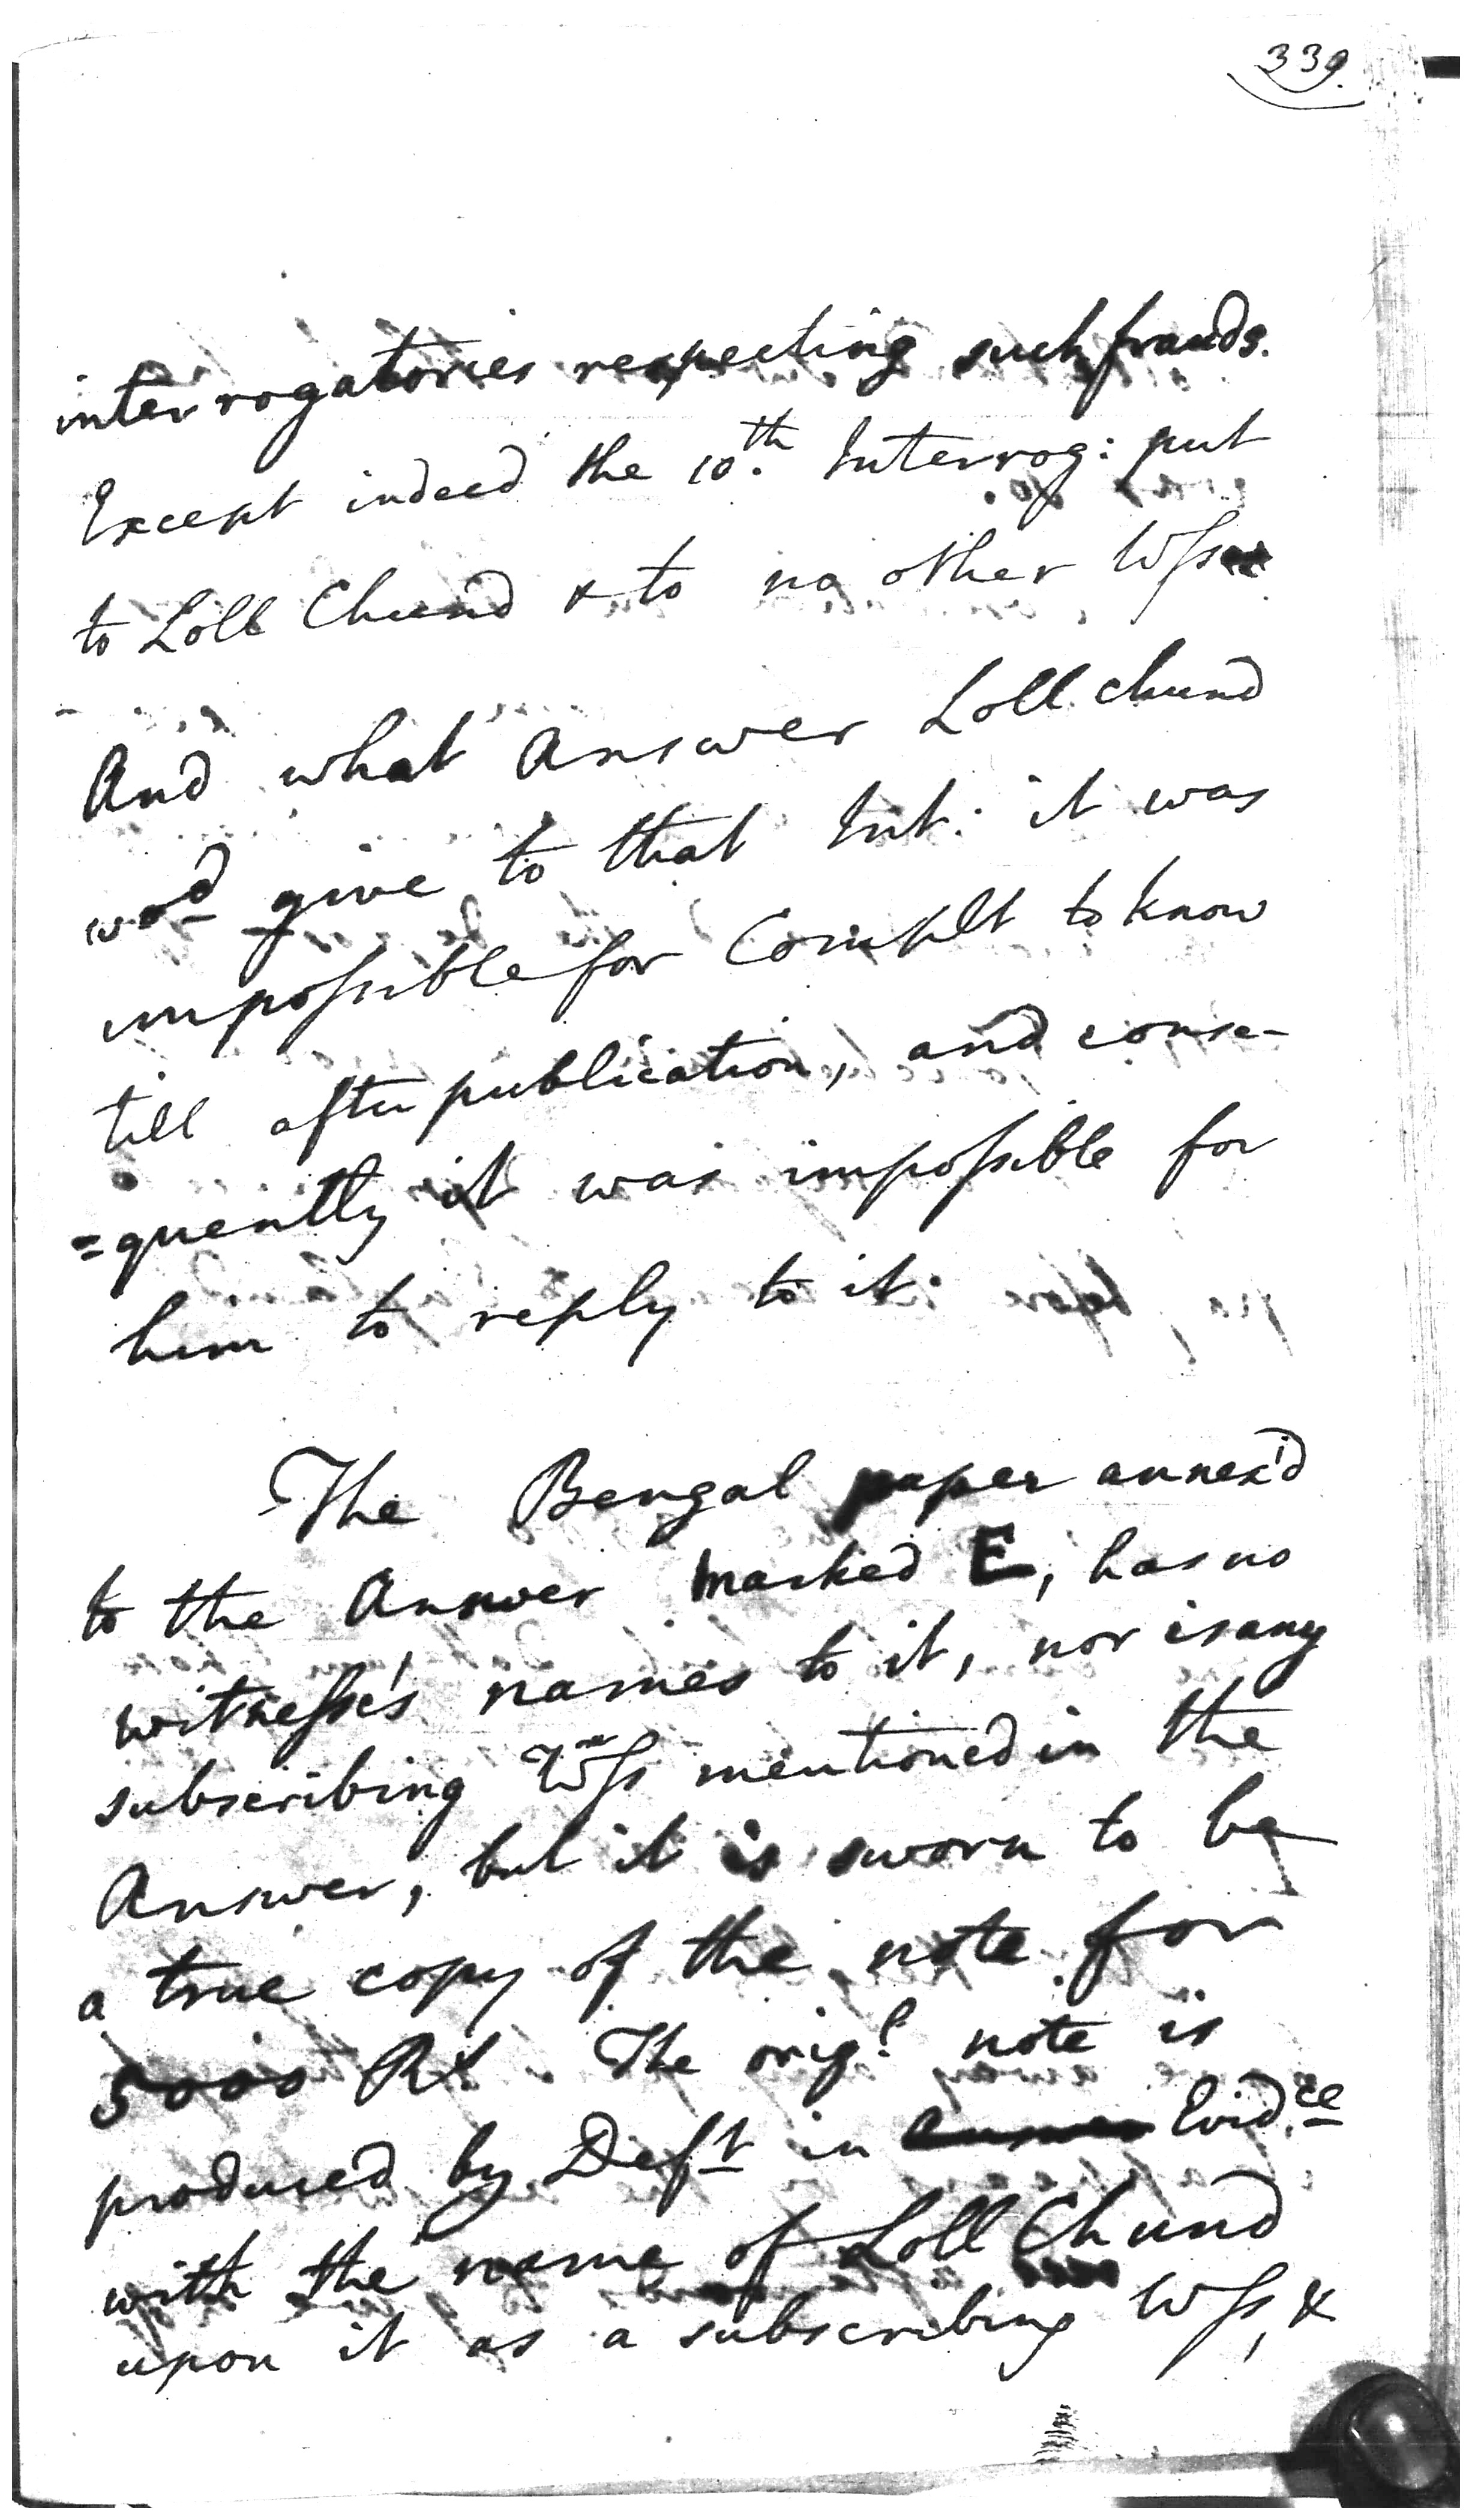 339.
interrogatories respecting such frauds.
Except indeed the 10.th Interrog: put
to Loll Chund & to no other Wſs
And what Answer Loll chund
wod give to that Int: it was
impoſsible for Complt to know
till after publication, and conse-
=quently it was impoſsible for
him to reply to it.
The Bengal paper annex'd
to the Answer marked E, has no
witneſse's names to it, nor is any
subscribing Wſs mentioned in the
Answer, but it is sworn to be
a true copy of the note for
5000 Rs The orig.l note is
produced by Deft in Evid.ce
with the name of Loll Chund
upon it as a subscribing Wſs, &